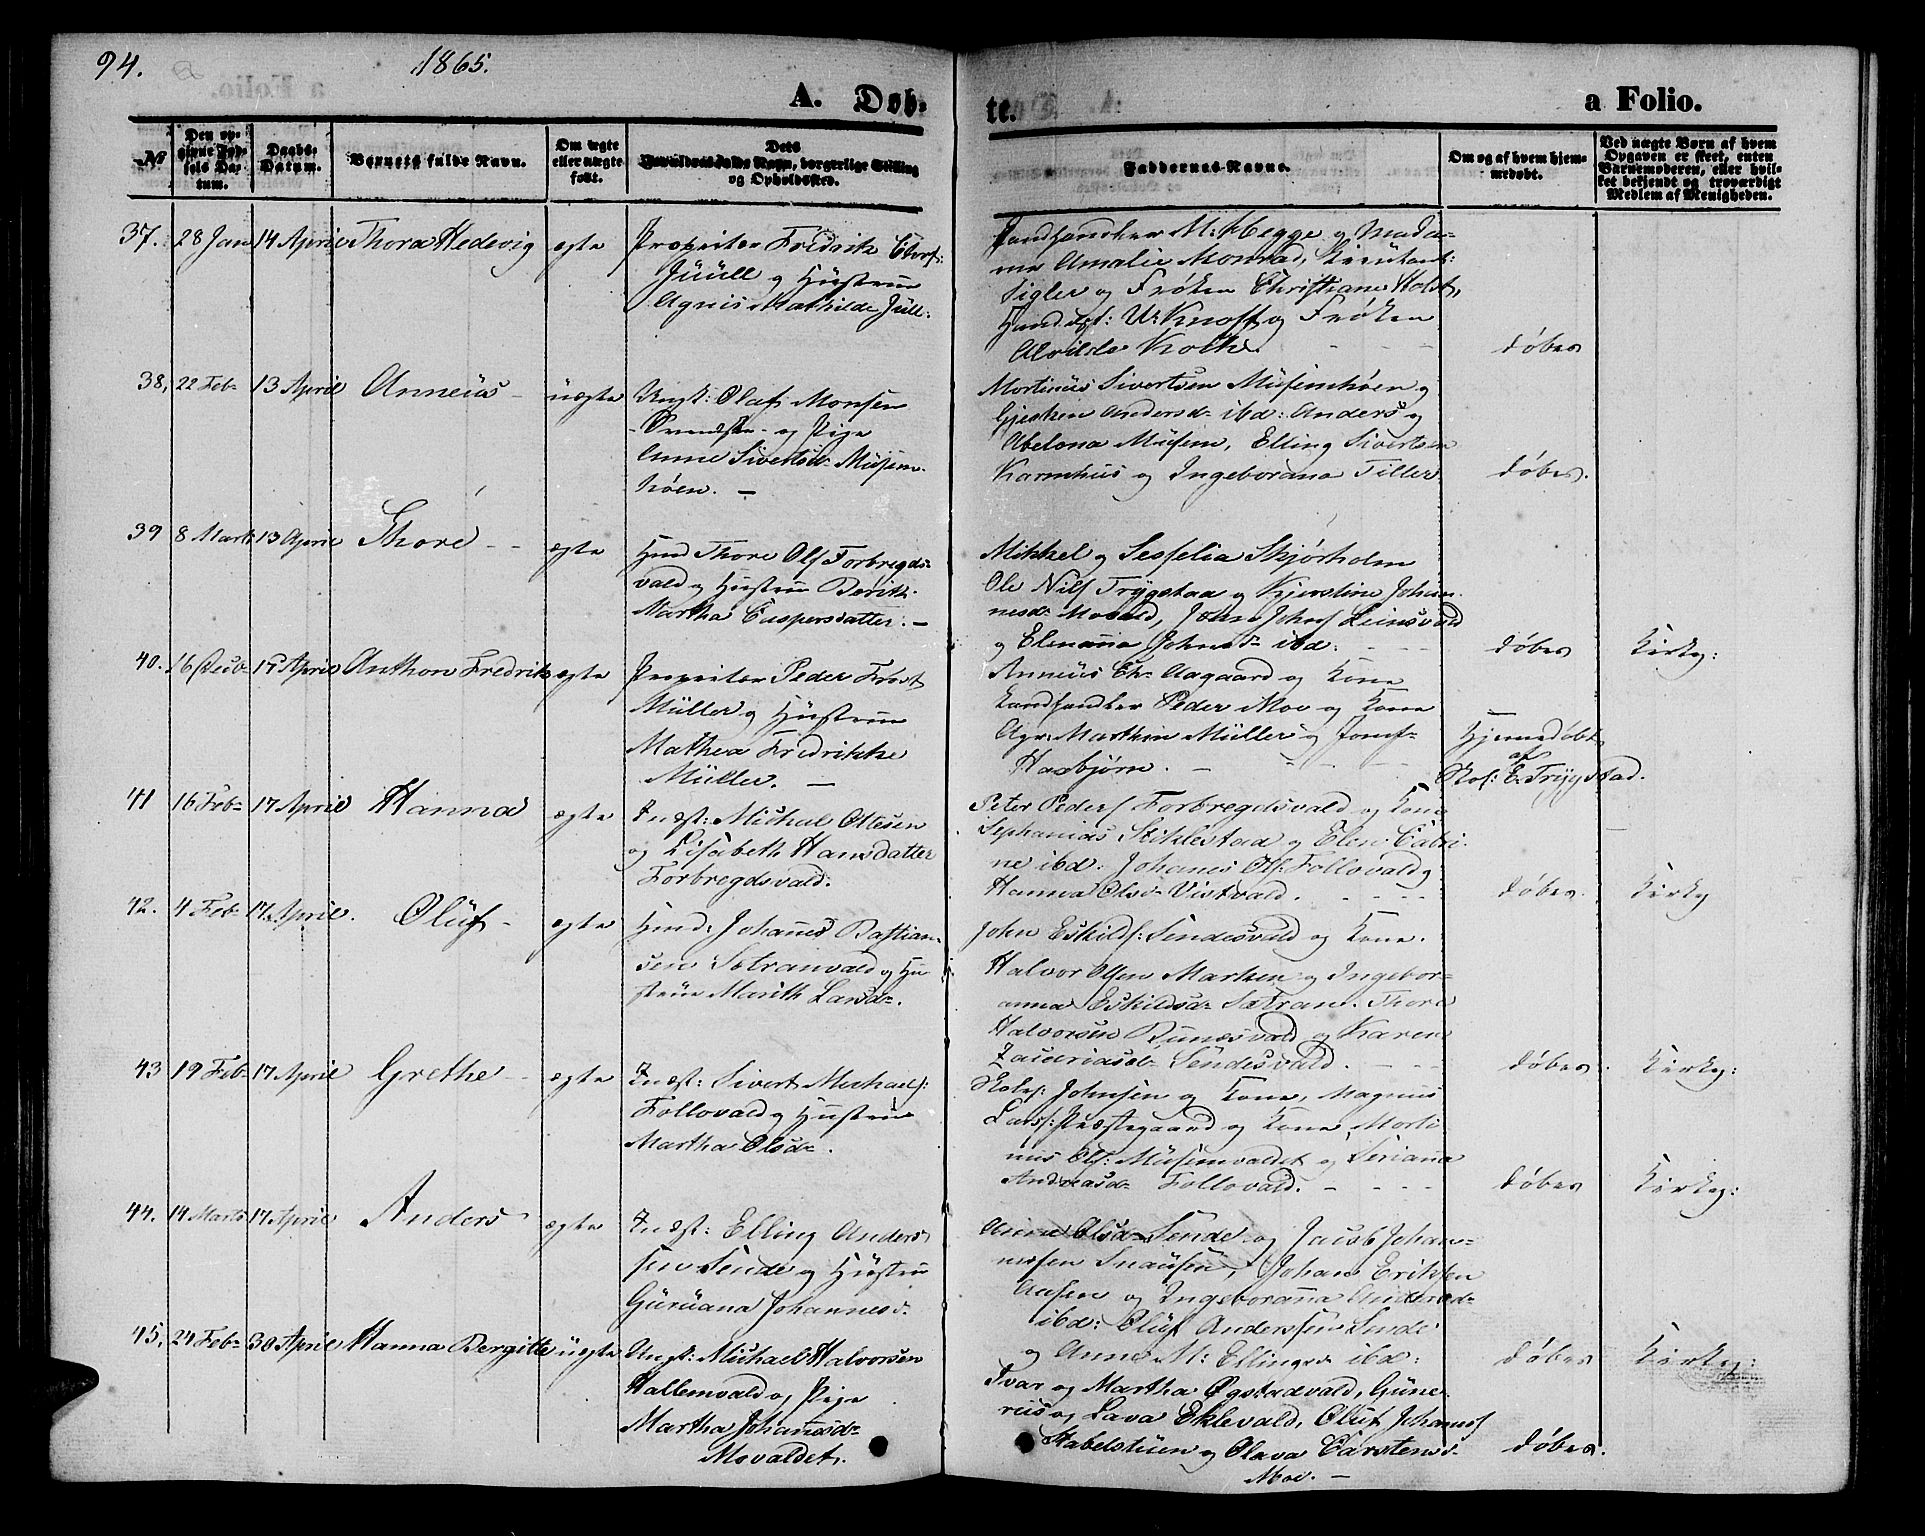 94.
1865.
A. Døb-
te.
a Folio.
№
Den op-
givne Fød-
sels Da-
tum.
Daabs-
Datum.
Barnets fulde Navn.
Om ægte
eller uægte
født.
Dets
Forældres fulde Navn, borgerlige Stilling
og Opholdssted.
Faddernes Navne.
Om og af hvem hjem-
medøbt.
Ved uægte Børn af hvem
Opgaven er skeet, enten
Barnemoderen, eller hvil-
ket bekjendt og troværdigt
Medlem af Menigheden.
37. 28 Jan 14 April Thora Hedevig ægte
Proprietær Fredrik Christ:
Jüüll og Hüstrue
Agnis Mathilde Jüll.
Landhandler M: Hegge og Mada-
me Amalie Monrad, Lieutent:
Sigler og Frøken Christiane Holst,
Handelsf: W: Knoff og Frøken
Alvilde Kolke. - - - døbes
38, 22 Feb- 13 April Anneüs - üægte
Ungk: Olaf Monsen
og Pige
Anne Sivertsd- Müsem-
høen. -
Mortinüs Sivertsen Müsemhøen og
Gjesken Andersd- ibd: Anders og
Abelona Müsem, Elling Sivertsen
Karmhus og Ingeborana Tiller døbes.
39 8 Marts 13 April Thore - - ægte
Hmd Thore Ols Forbregds-
vald og Hustrue Berith
Martha Caspersdatter. -
Mikkel og Sesselia Skjørholm
Ole Nils Trygstaa og Kjerstine Johan-
nesd- Movald, Jøns Johns Leinsvald
og Elenanna Johnsd- ibd: - - - døbes Kirkeg:
40. 16 15 April Anthon Fredrik ægte
Proprietær Peder Frost
Müller og Hüstrue
Mathea Fredrikke
Müller. -
Anneüs Ch- Aagaard og Kone
Landhandler Peder Moe og Kone
Agr: Marthin Müller og Josef
Haxbjørn. - - - - Hjemedøbt
af
E. Trygstad.
41 16 Feb- 17 April Hanna ægte
Indst: Michal Ottesen
og Lisabeth Hansdatter
Forbregdsvald.
Peter Peders Forbregdsvald og Kone
Sephanias Stiklestad og Elen Catri-
ne ibd: Johanes Ols. Follovald og
Hanna Olsd- Vistvald. - - - - døbes Kirkeg
42. 4 Feb- 17 April. Olüf - ægte
Hmd: Johannes Bastian-
sen Sætranvald og Hu
strüe Marith Larsd-.
John Eskilds: Sendesvald og Kone.
Halvor Olsen Marken og Ingebor-
anna Eskildsd- Sætran. Thore
Halvorsen Runæsvald og Karen
Zacariasd- Sendesvald. - - - døbes. Kirkeg:
43 19 Feb- 17 April Grethe - ægte
Indst: Sivert Michaels:
Follovald og Hustrue
Martha Olsd-.
Johnsen og Kone, Magnus
Lars: Præstegaard og Kone, Morti
nus Ols: Müsemvaldet og Seriana
Andreasd- Follovald. - - - - døbes Kirkeg:
44. 14 Marts 17 April Anders ægte
Indst: Elling Anders
sen Sende og Hüstrue
Gürüana Johannesd-
Anne Olsd- Sende og Jacob Johan-
nessen Snausen, Johan Eriksen
Ausen og Ingeboranna Andersd-
ibd: Olüf Anderssen Sende
og Anne M: Ellingsd- ibd: døbes Kirkeg:
45, 24 Feb- 30 April Hanna Bergitte üægte
Ungk: Michael Halvorsen
Hallemvald og Pige
Martha Johannesd-
Movaldet.
Ivar og Martha Øgstadvald, Güne-
rius og Lava Eklevald, Olüf Johannes
Stabelstüen og Olava Carstensd- døbes.
Moe. -